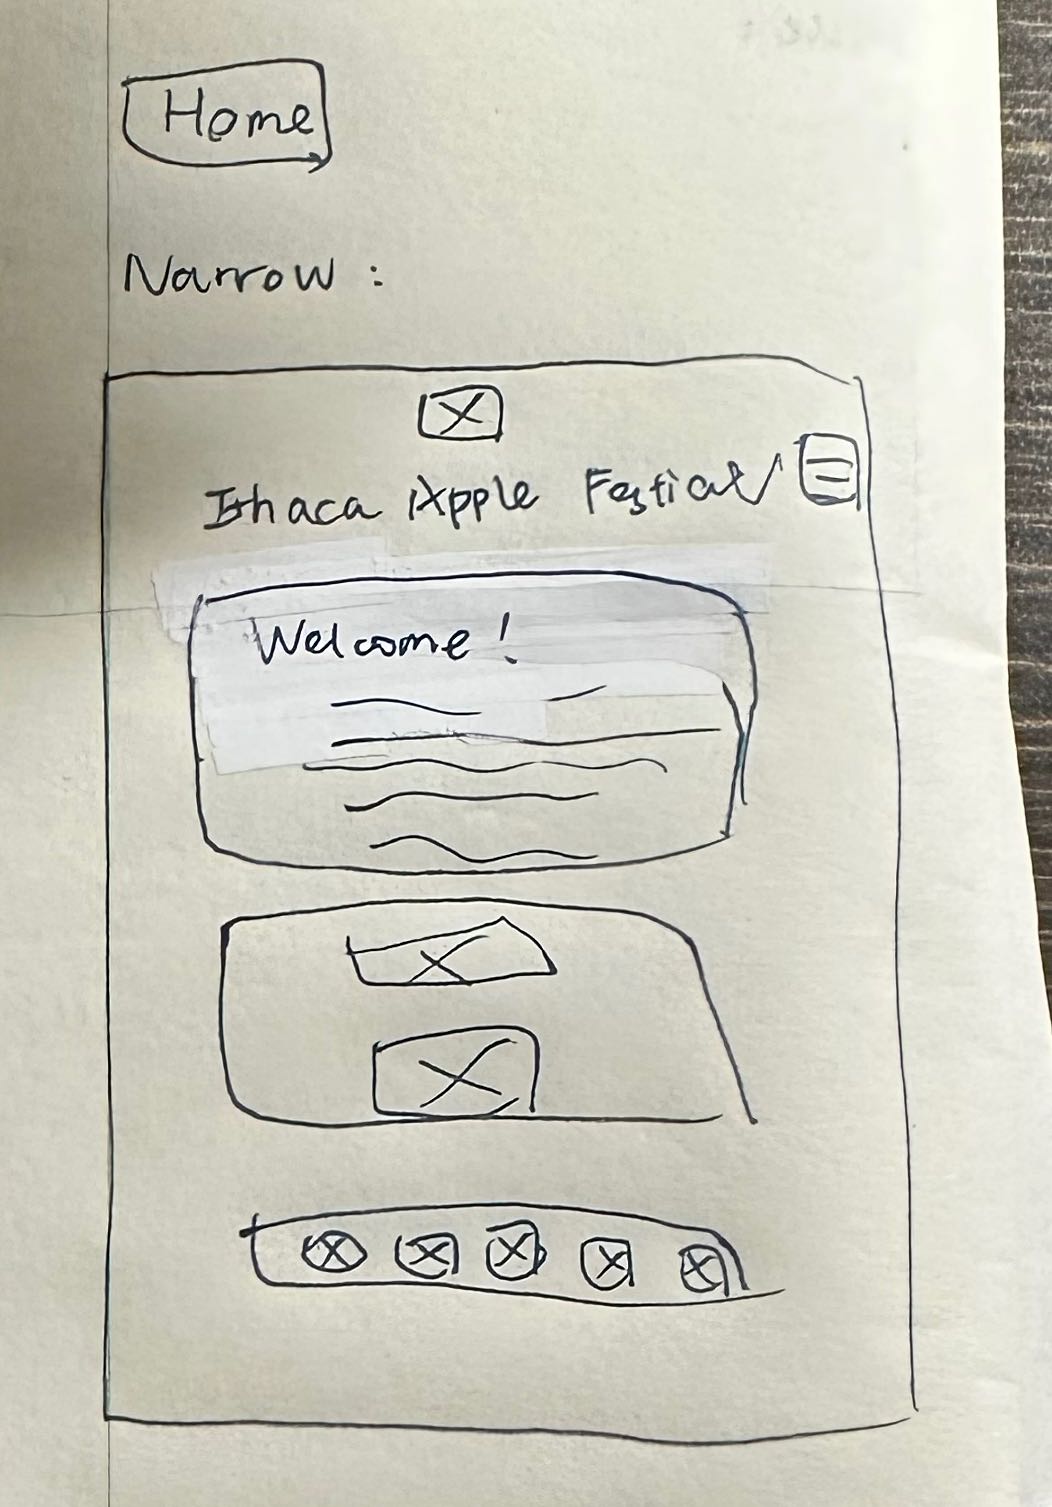 Home
Narrow :
Ithaca Apple Festial
Welcome !